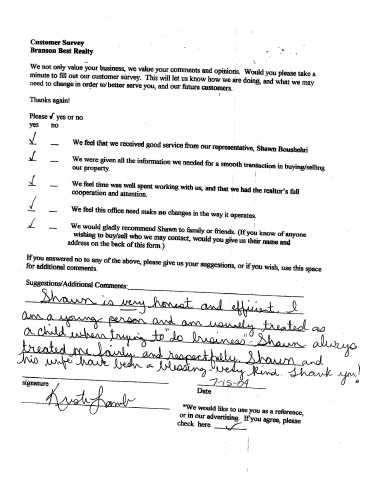 Customer Survey
Branson Best Realty
We not only value your business, we value your comments and opinions. Would you please take a
minute to fill out our customer survey. This will let us know how we are doing, and what we may
need to change in order to better serve you, and our future customers.
Thanks again!
Please √ yes or no
yes no
√ __ We feel that we received good service from our representative, Shawn Boushehri
√ __ We were given all the information we needed for a smooth transaction in buying/selling
our property.
√ __ We feel time was well spent working with us, and that we had the realtor's full
cooperation and attention.
√ __ We feel this office need make no changes in the way it operates.
√ __ We would gladly recommend Shawn to family or friends. (If you know of anyone
wishing to buy/sell who we may contact, would you give us their name and
address on the back of this form.)
If you answered no to any of the above, please give us your suggestions, or if you wish, use this space
for additional comments.
Suggestions/Additional Comments:
Shawn is very honest and efficient. I
am a young person and am usually treated as
a child when trying to "do business - Shawn always
treated me fairly and respectfully. Shawn and
his wife have been a blessing - very kind. Thank you!
signature 7-15-04
Date
Kristi Lamb
*We would like to use you as a reference,
or in our advertising. If you agree, please
check here √